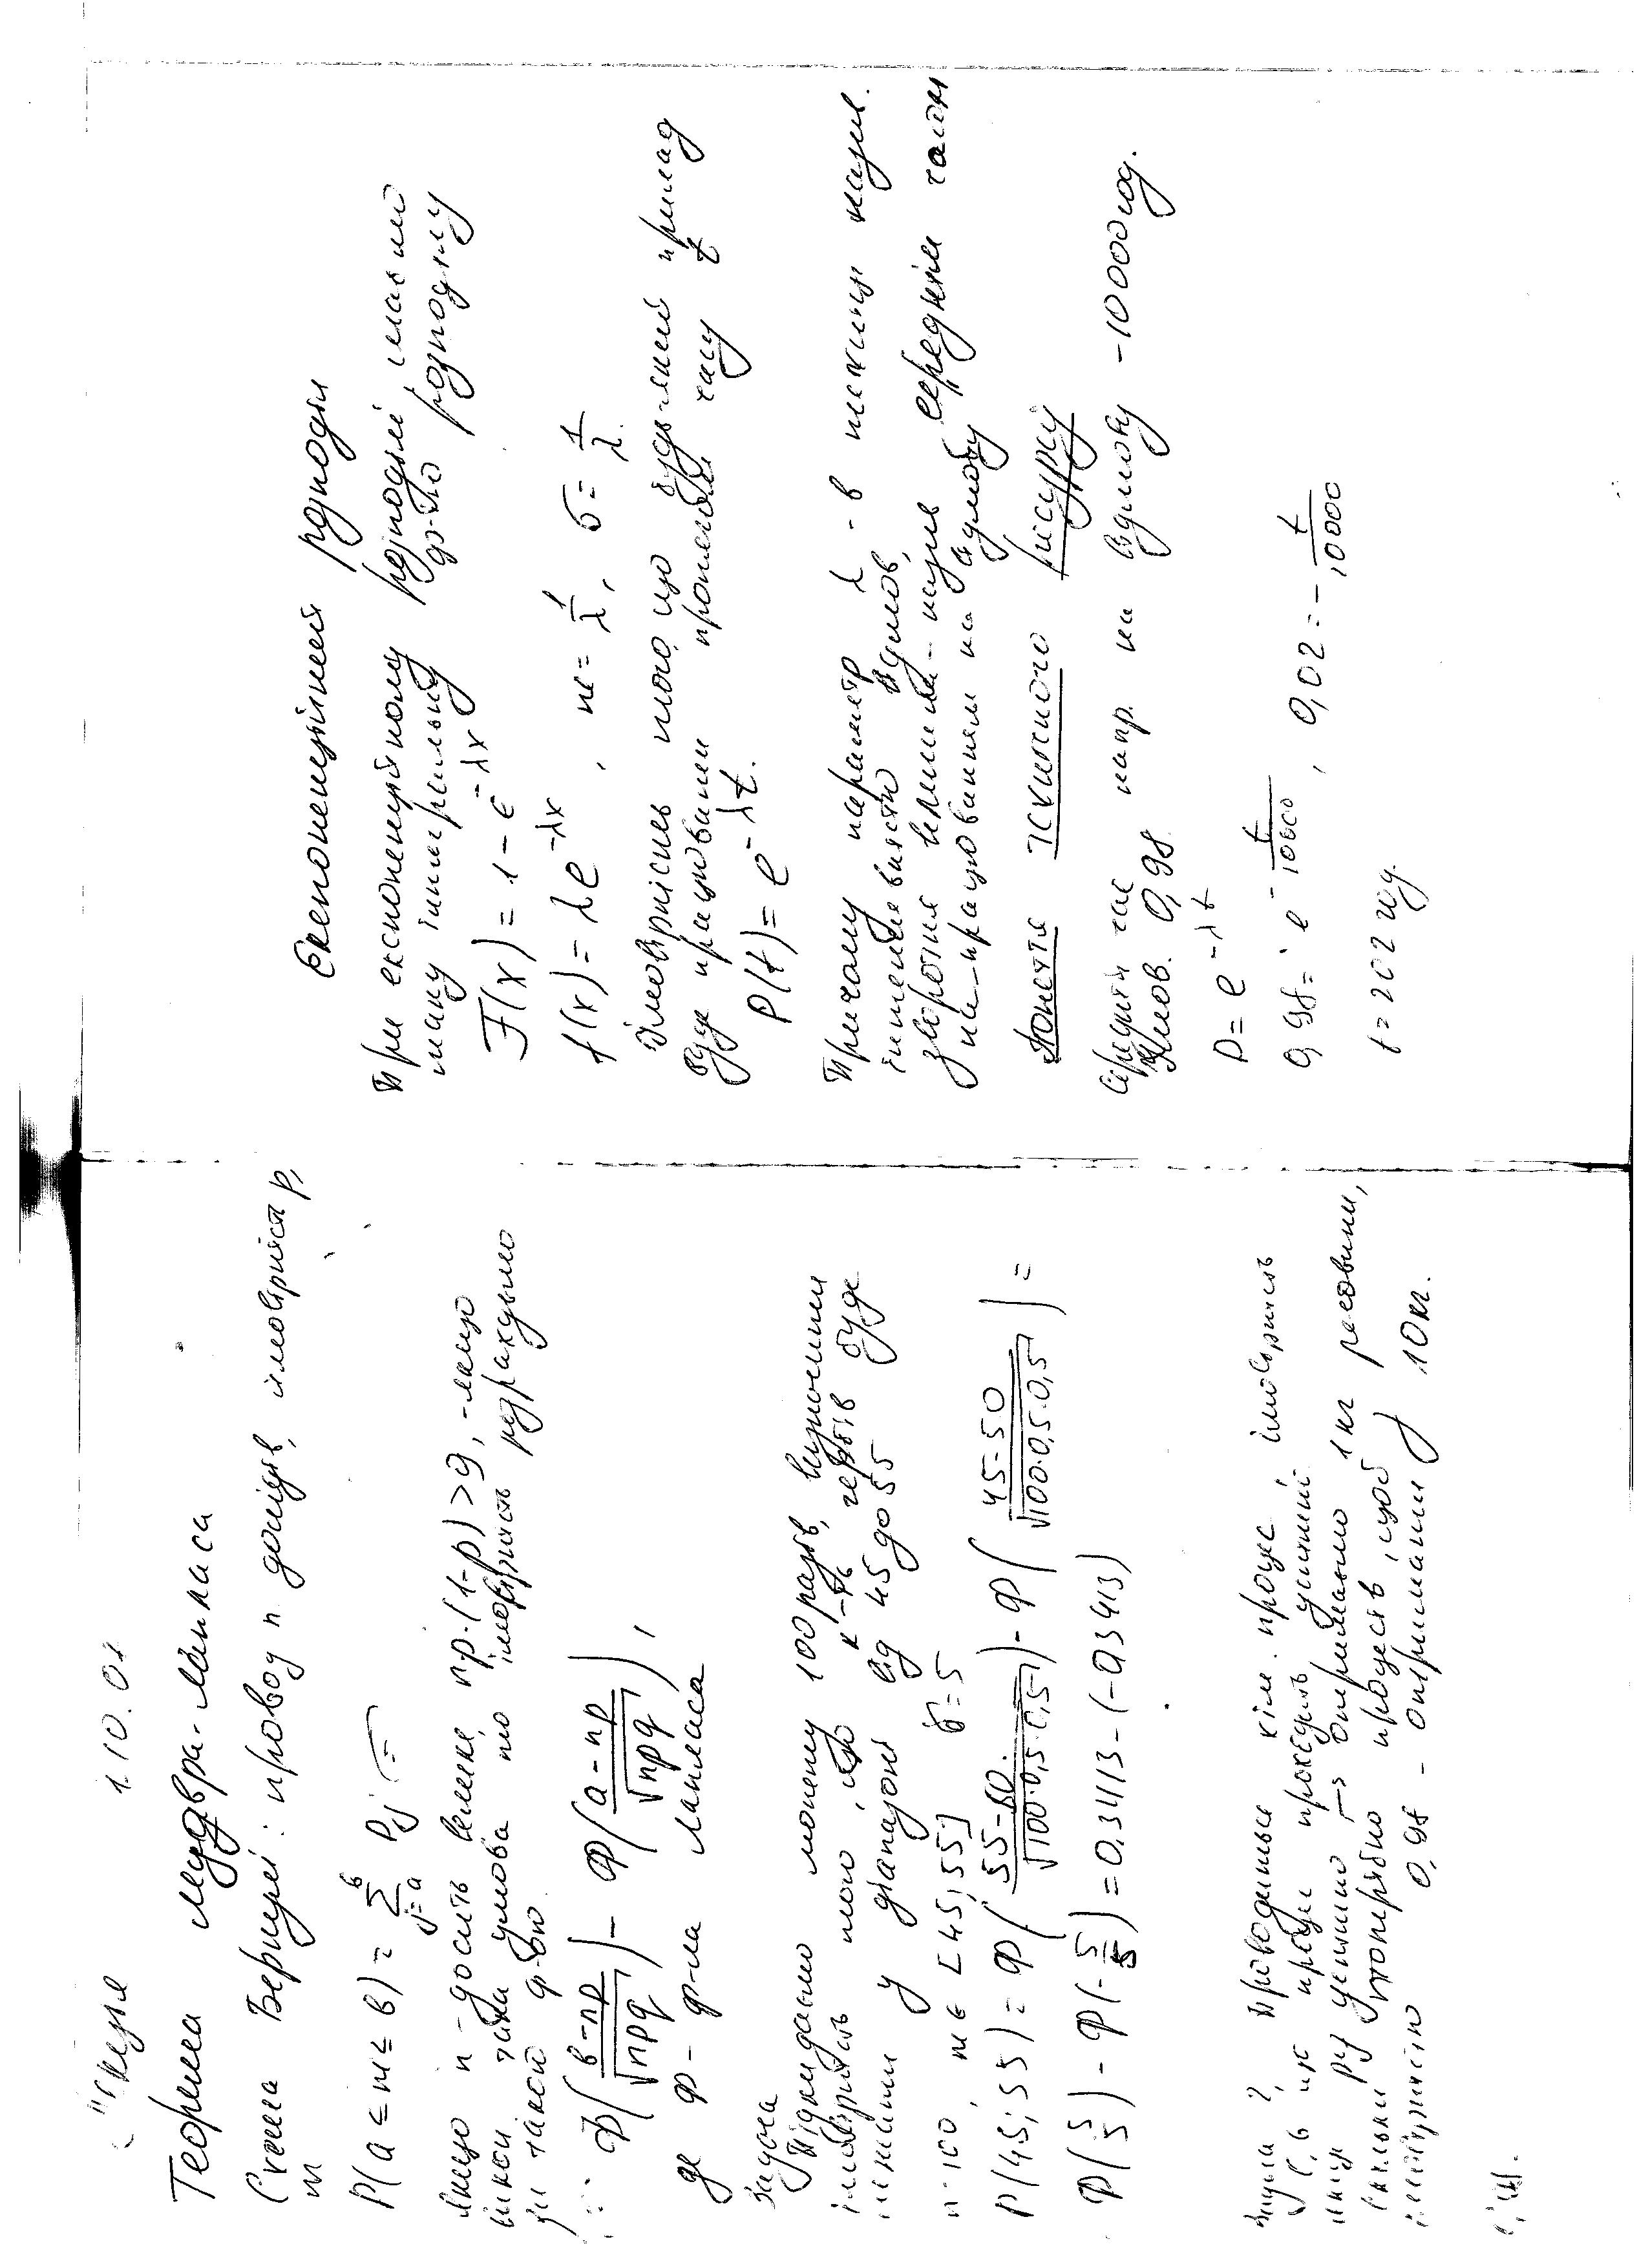 Лекція 1.10.02
Теорема Муавра-Лапласа
Схема Бернуллі: провод n дослідів, ймовірність p,
m
P(a ≤ m ≤ b) = ∑ j=a b Pj =
якщо n - досить велике, np·(1-p) > 9, - якщо
така умова то імовірність розрахуємо
за такою ф-ою
Ф( b-np / √npq ) - Ф( a-np / √npq ),
де Ф - ф-ла Лапласа
Задача
Підкидаємо монету 100 разів, визначити
імовірність того, що к-ть гербів буде
лежати у діапазоні від 45 до 55
n = 100, m ∈ [45; 55] σ = 5
P(45; 55) = Ф( 55-50 / √100·0,5·0,5 ) - Ф( 45-50 / √100·0,5·0,5 ) =
Ф( 5/5 ) - Ф( - 5/5 ) = 0.3413 - (-0,3413)
Задача 2, Проводиться хім. процес, імовірність
що процес проходить успішно
раз успішно → отримаємо 1 кг речовини,
скільки потрібно процесів, щоб з
імовірністю 0,98 - отримати 10 кг.
Експоненційний розподіл
При експоненційному розподілі маємо
таку інтегральну ф-ію розподілу
F(x) = 1 - e^-λx
f(x) = λe^-λx, m = 1/λ, σ = 1/λ.
Ймовірність того, що будь-який прилад
буде працювати протягом часу t
P(t) = e^-λt.
Причому параметр λ - в техніці назив.
інтенсивністю відмов,
зворотня величина - назив середнім часом
на-працюванням на відмову
Поняття технічного ресурсу
Середній час напр. на відмову - 10 000 год.
Ймов. 0,98.
P = e^-λt
0,98 = e^- t/10000, 0,02 = - t/10000
t = 202 год.